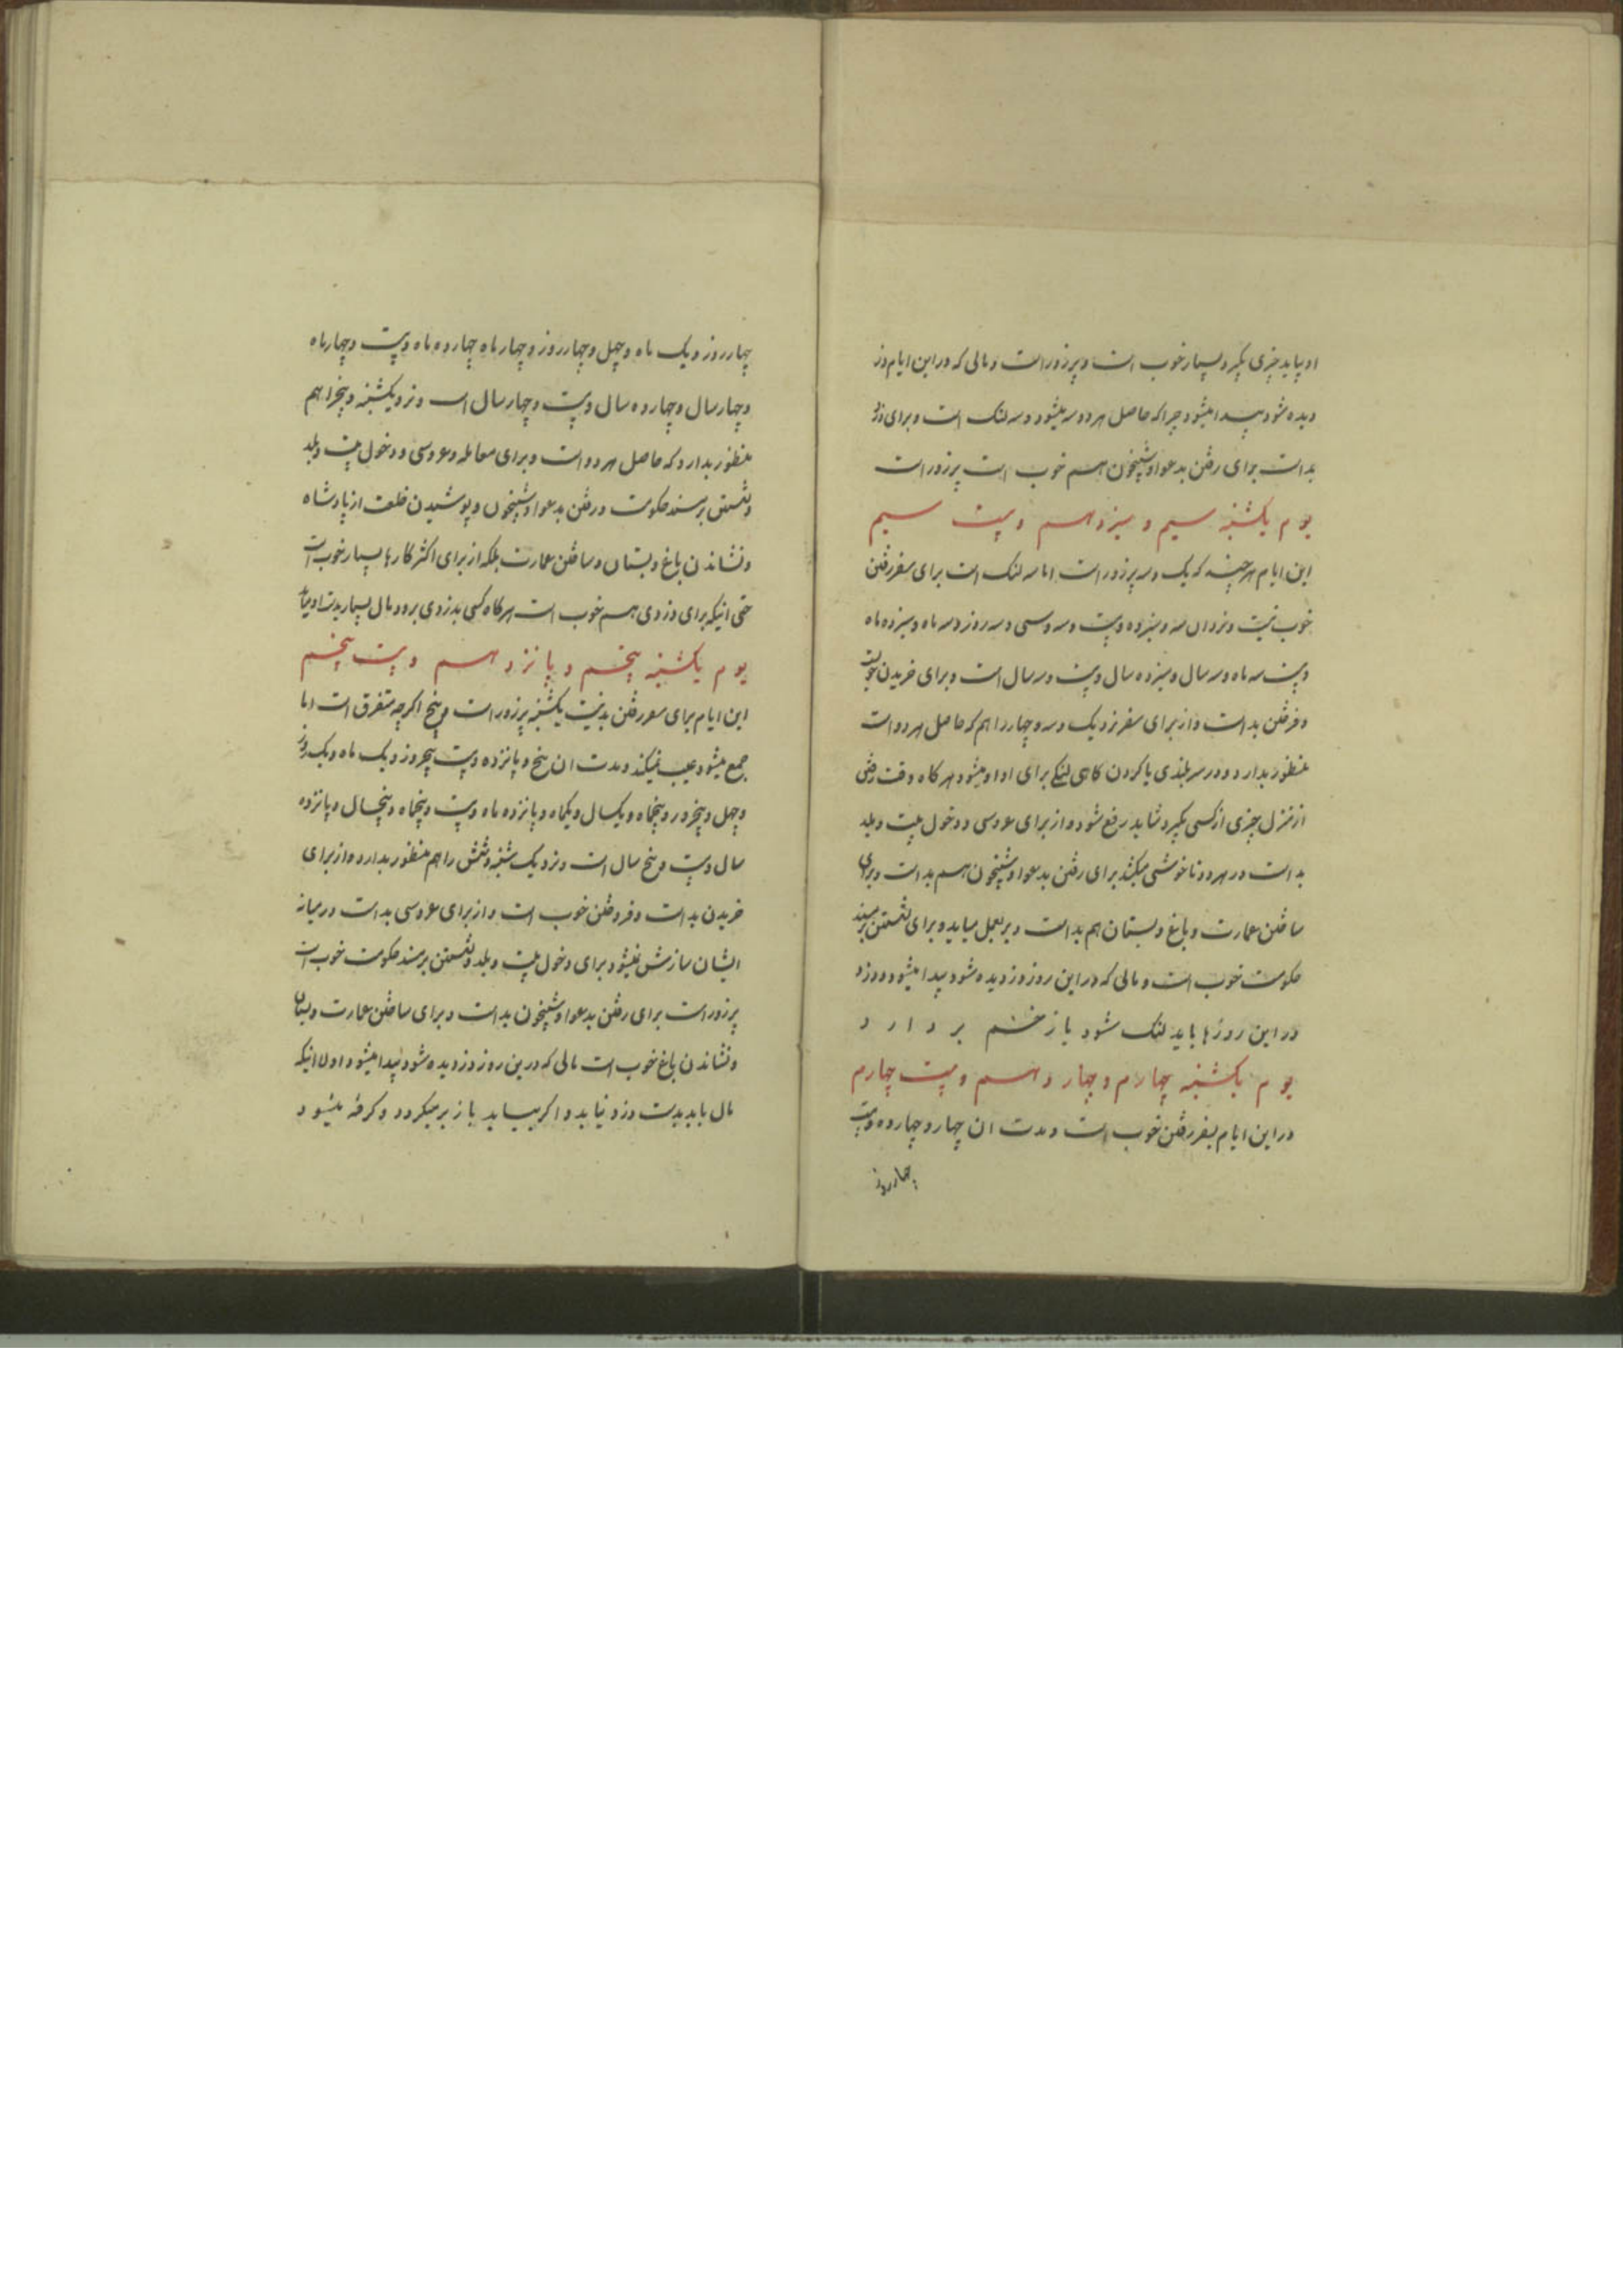 او بیاید چیزی بگیرد بسیار خوب است و پرزور است و مالی که در این ایام دز
دیده شود پیدا میشود چرا که حاصل هر دو سه میشود و سه لنک است و برای دزد
بد است برای رفتن بدعوا و شبیخون هم خوب است پرزور است
یوم یکشنبه سیم و سیزدهم و بیست سیم
این ایام هر چند که یک و سه پرزور است اما سه لنک است برای سفر رفتن
خوب نیست و نزد ان سه و سیزده و بیست و سه و سی و سه روز و سه ماه و سیزده ماه
و بیست سه ماه و سه سال و سیزده سال و بیست و سه سال است و برای خریدن
و فرختن بد است و از برای سفر نزد یک و سه و چهار را هم که حاصل هر دو است
منظور بدارد و در سر بلندی پا کردن کاهی لنکی برای او میشود هر کاه وقت رفتن
از منزل چیزی از کسی بگیرد شاید رفع شود و از برای عروسی و دخول بیت و بلد
بد است در هر دو ناخوشی میکشد برای رفتن بدعوا و شبیخون هم بد است و برای
ساختن عمارت و باغ و بستان هم بد است دیر بعمل میاید و برای نشستن بر مسند
حکومت خوب است و مالی که در این روز دزدیده شود پیدا میشود و دزد
در این روزها باید لنک شود یا زخم بردارد
یوم یکشنبه چهارم و چهاردهم و بیست چهارم
در این ایام بسفر رفتن خوب است و مدت ان چهار و چهارده و بیست
چهار روز
چهار روز و یک ماه و چهل و چهار روز و چهار ماه چهارده ماه و بیست و چهار ماه
و چهار سال و چهارده سال و بیست و چهار سال است و نزد یکشنبه و پنج را هم
منظور بدارد که حاصل هر دو است و برای معامله و عروسی و دخول بیت و بلد
و نشستن بر مسند حکومت و رفتن بدعوا و شبیخون و پوشیدن خلعت از پادشاه
و نشاندن باغ و بستان و ساختن عمارت بلکه از برای اکثر کارها بسیار خوب است
حتی اینکه برای دزدی هم خوب است هر کاه کسی بدزدی برود مال بسیار بدست او میاید
یوم یکشنبه پنجم و پانزدهم و بیست پنجم
این ایام برای سفر رفتن بد نیست یکشنبه پرزور است و پنج اکرچه متفرق است اما
جمع میشود عیب نمیکند و مدت ان پنج و پانزده و بیست پنجروز و یک ماه و یک روز
و چهل و پنجروز و پنجماه و یکسال و یکماه و پانزده ماه و بیست و پنجماه و پنجسال و پانزده
سال و بیست و پنج سال است و نزد یک شنبه و شش را هم منظور بدارد و از برای
خریدن بد است و فروختن خوب است و از برای عروسی بد است در میانه
ایشان سازش نمیشود برای دخول بیت و بلد و نشستن بر مسند حکومت خوب است
پرزور است برای رفتن بدعوا و شبیخون بد است و برای ساختن عمارت و بستان
و نشاندن باغ خوب است مالی که درین روز دزدیده شود پیدا میشود اول اینکه
مال باید بدست دزد نیاید و اکر بیاید باز بر میکردد و کرفته میشود